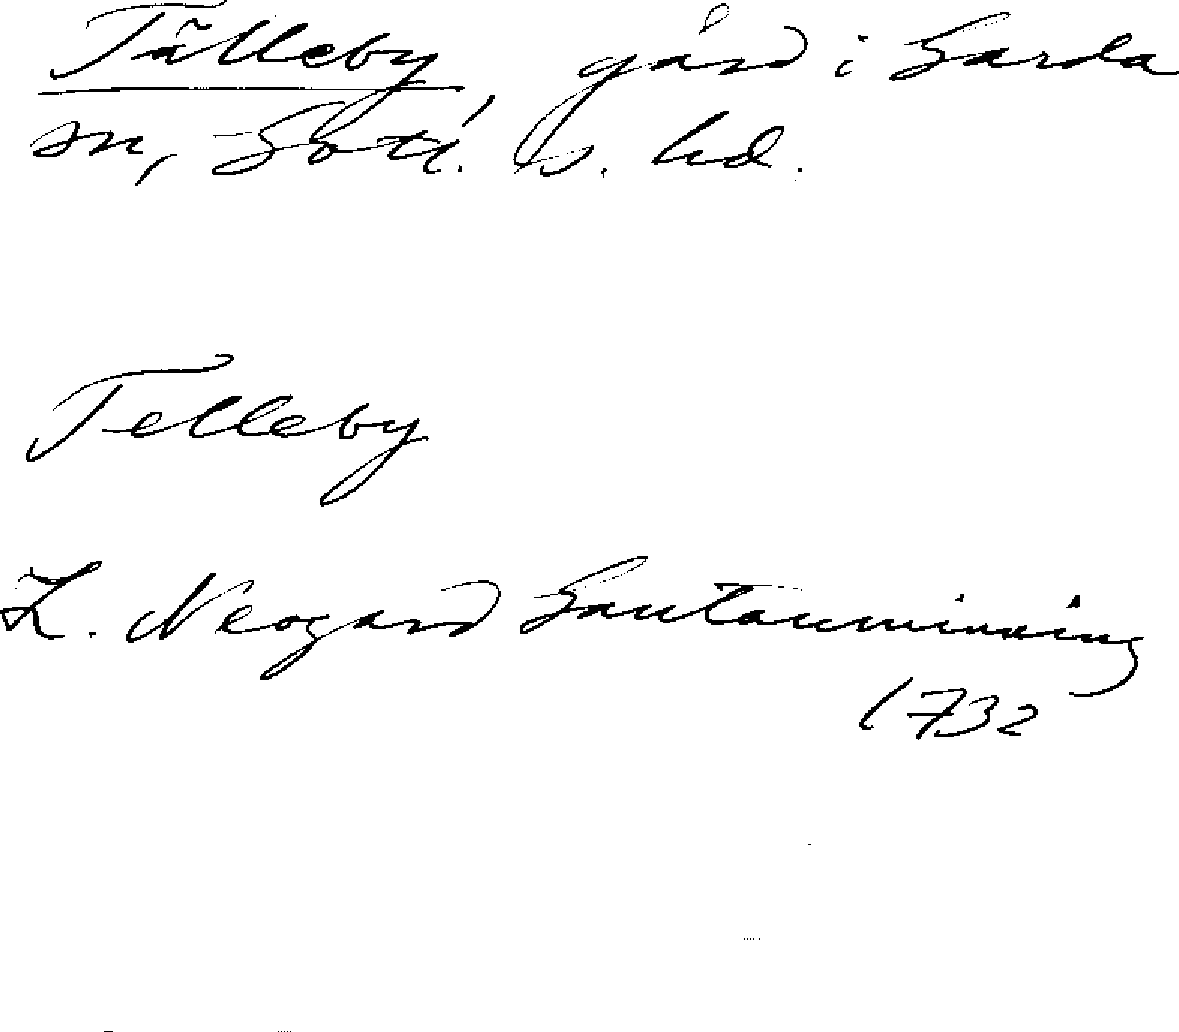 Tälleby gård i Garda
sn, Gotl. s. hd.
Telleby
L. Neogard Gautauminning
1732